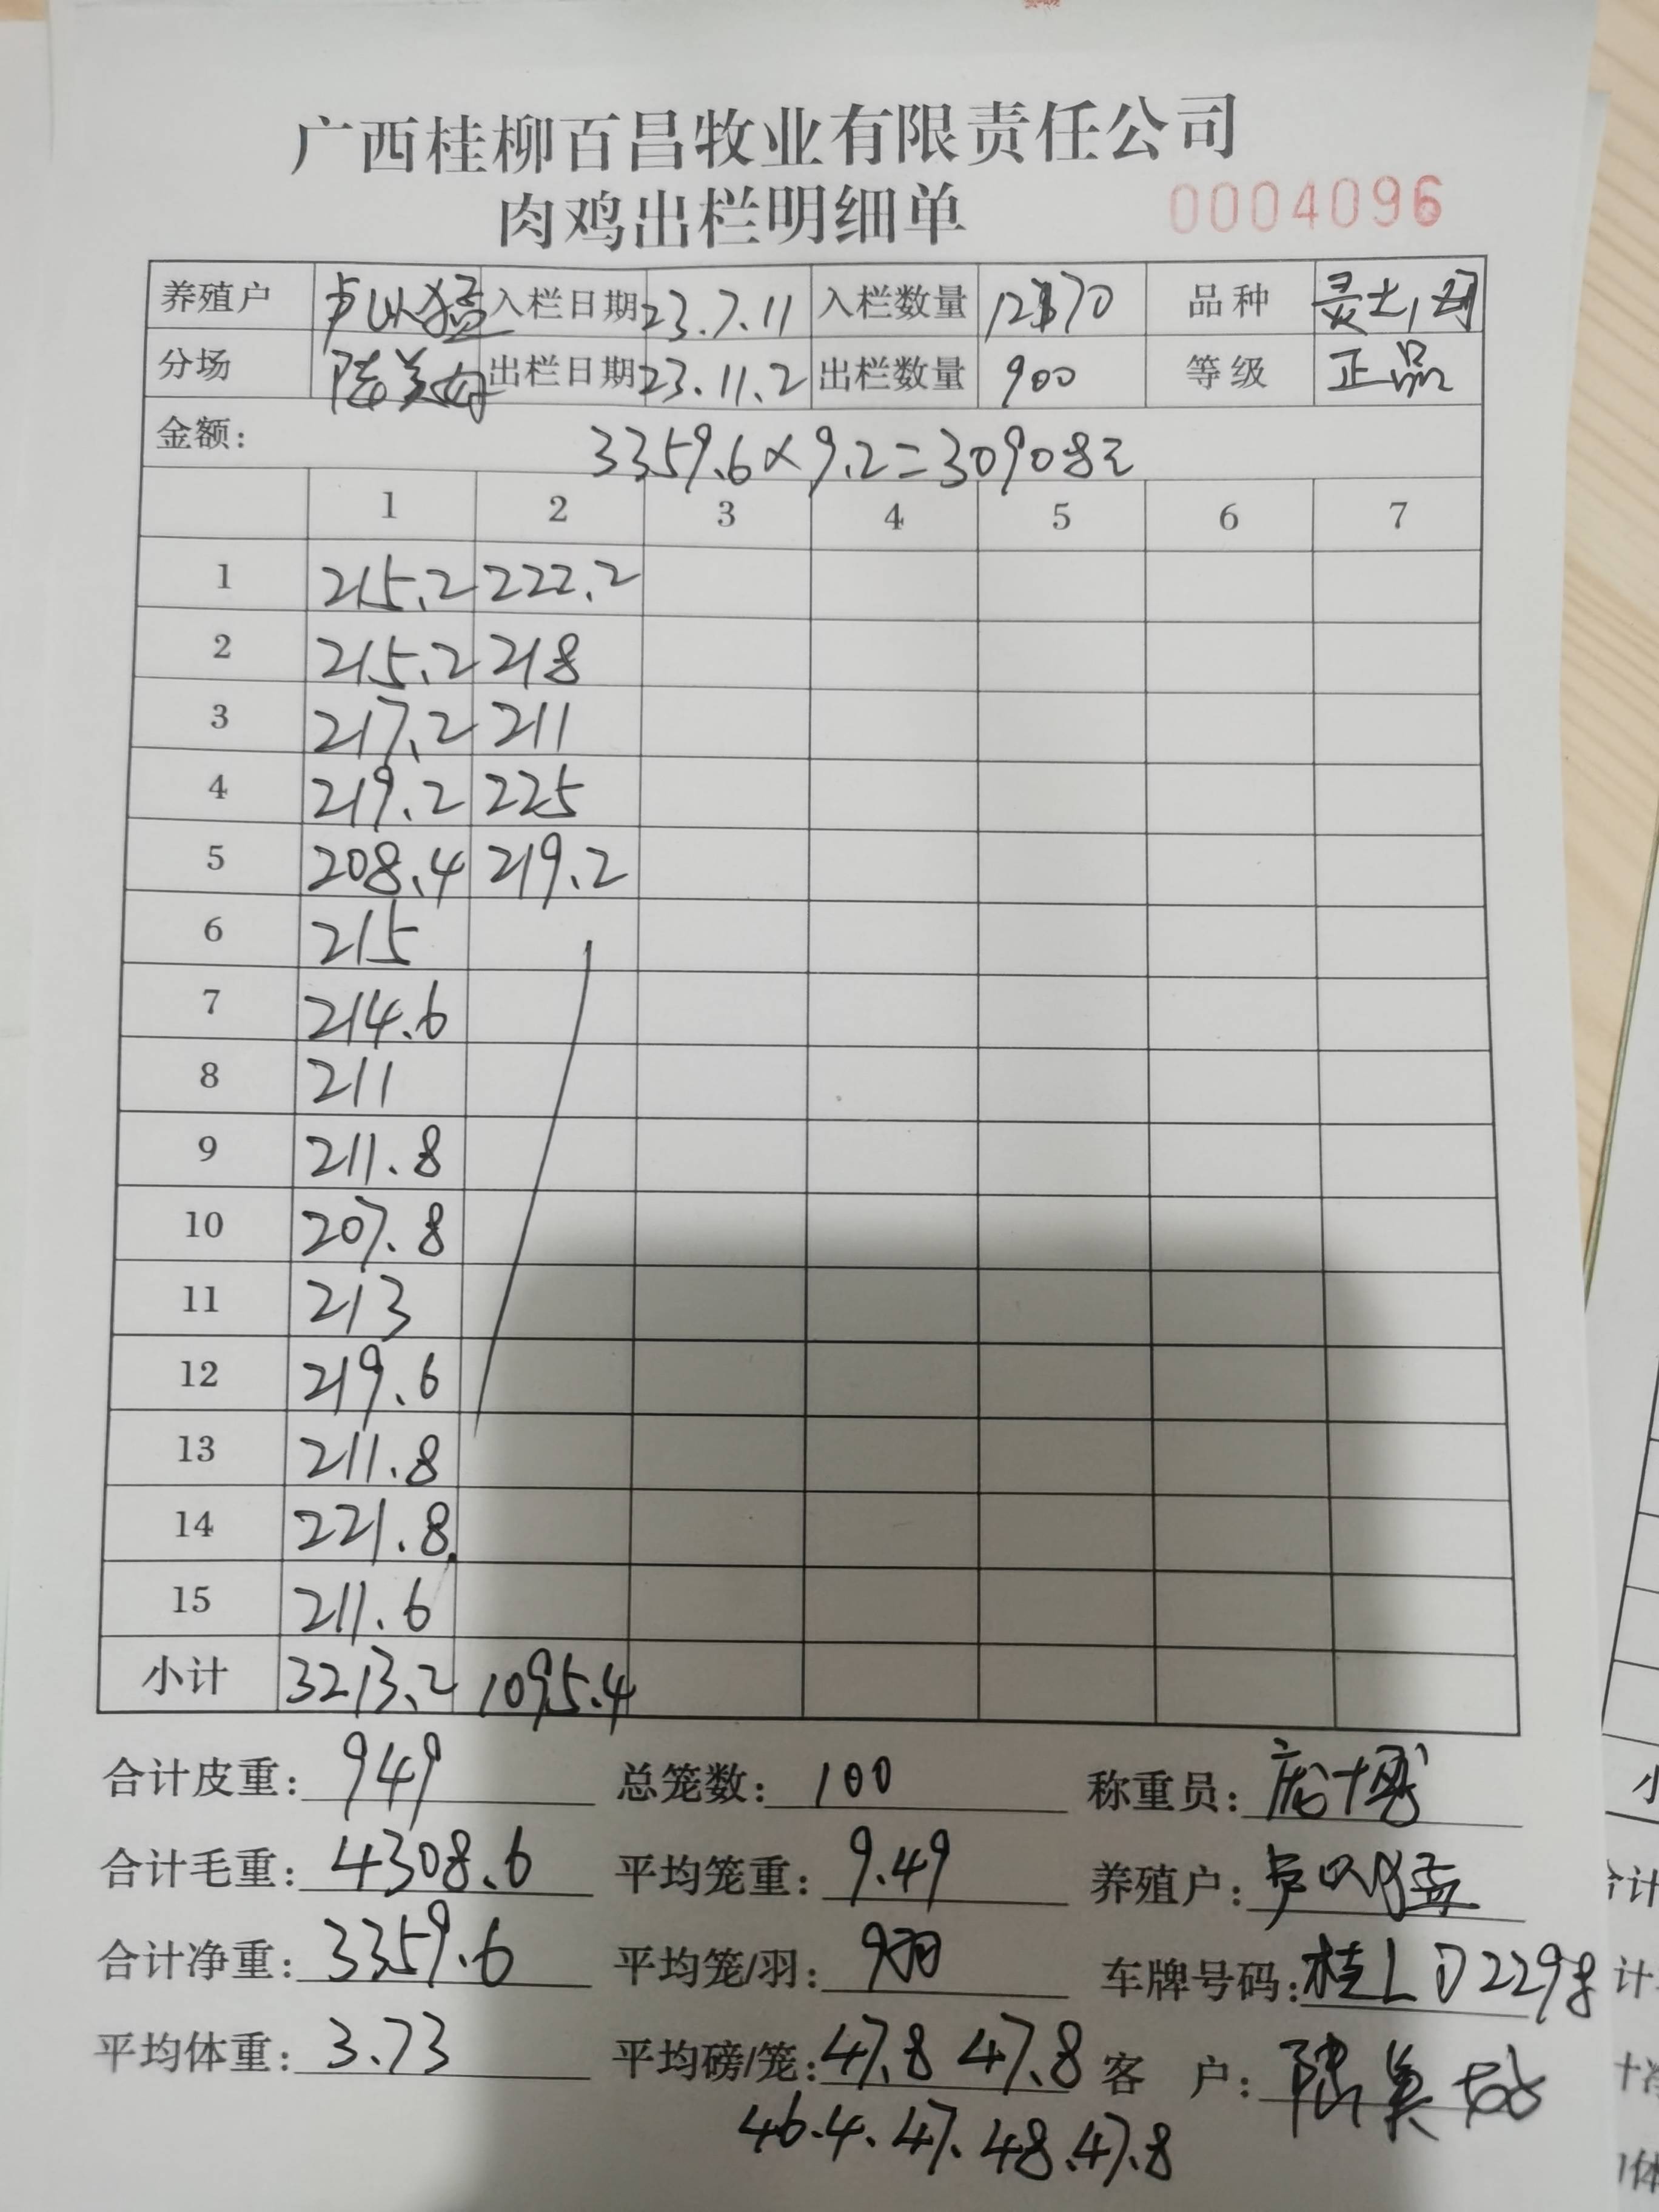 广西桂柳百昌牧业有限责任公司
肉鸡出栏明细单 0004096
养殖户 入栏日期 23.7.11 入栏数量 品种
分场 陆美 出栏日期 23.11.2 出栏数量 900 等级 正品
金额: 3359.6×9.2=30908元
1 2 3 4 5 6 7
1 215.2 222.2
2 215.2 218
3 217.2 211
4 219.2 225
5 208.4 219.2
6 215
7 214.6
8 211
9 211.8
10 207.8
11 213
12 219.6
13 211.8
14 221.8
15 211.6
小计 3213.2 1095.4
合计皮重: 949 总笼数: 100 称重员:
合计毛重: 4308.6 平均笼重: 9.49 养殖户:
合计净重: 3359.6 平均笼/羽: 9羽 车牌号码: 桂LD2298
平均体重: 3.73 平均磅/笼: 47.8 47.8 客 户: 陆美
46.4. 47. 48. 47.8
小
合计
计